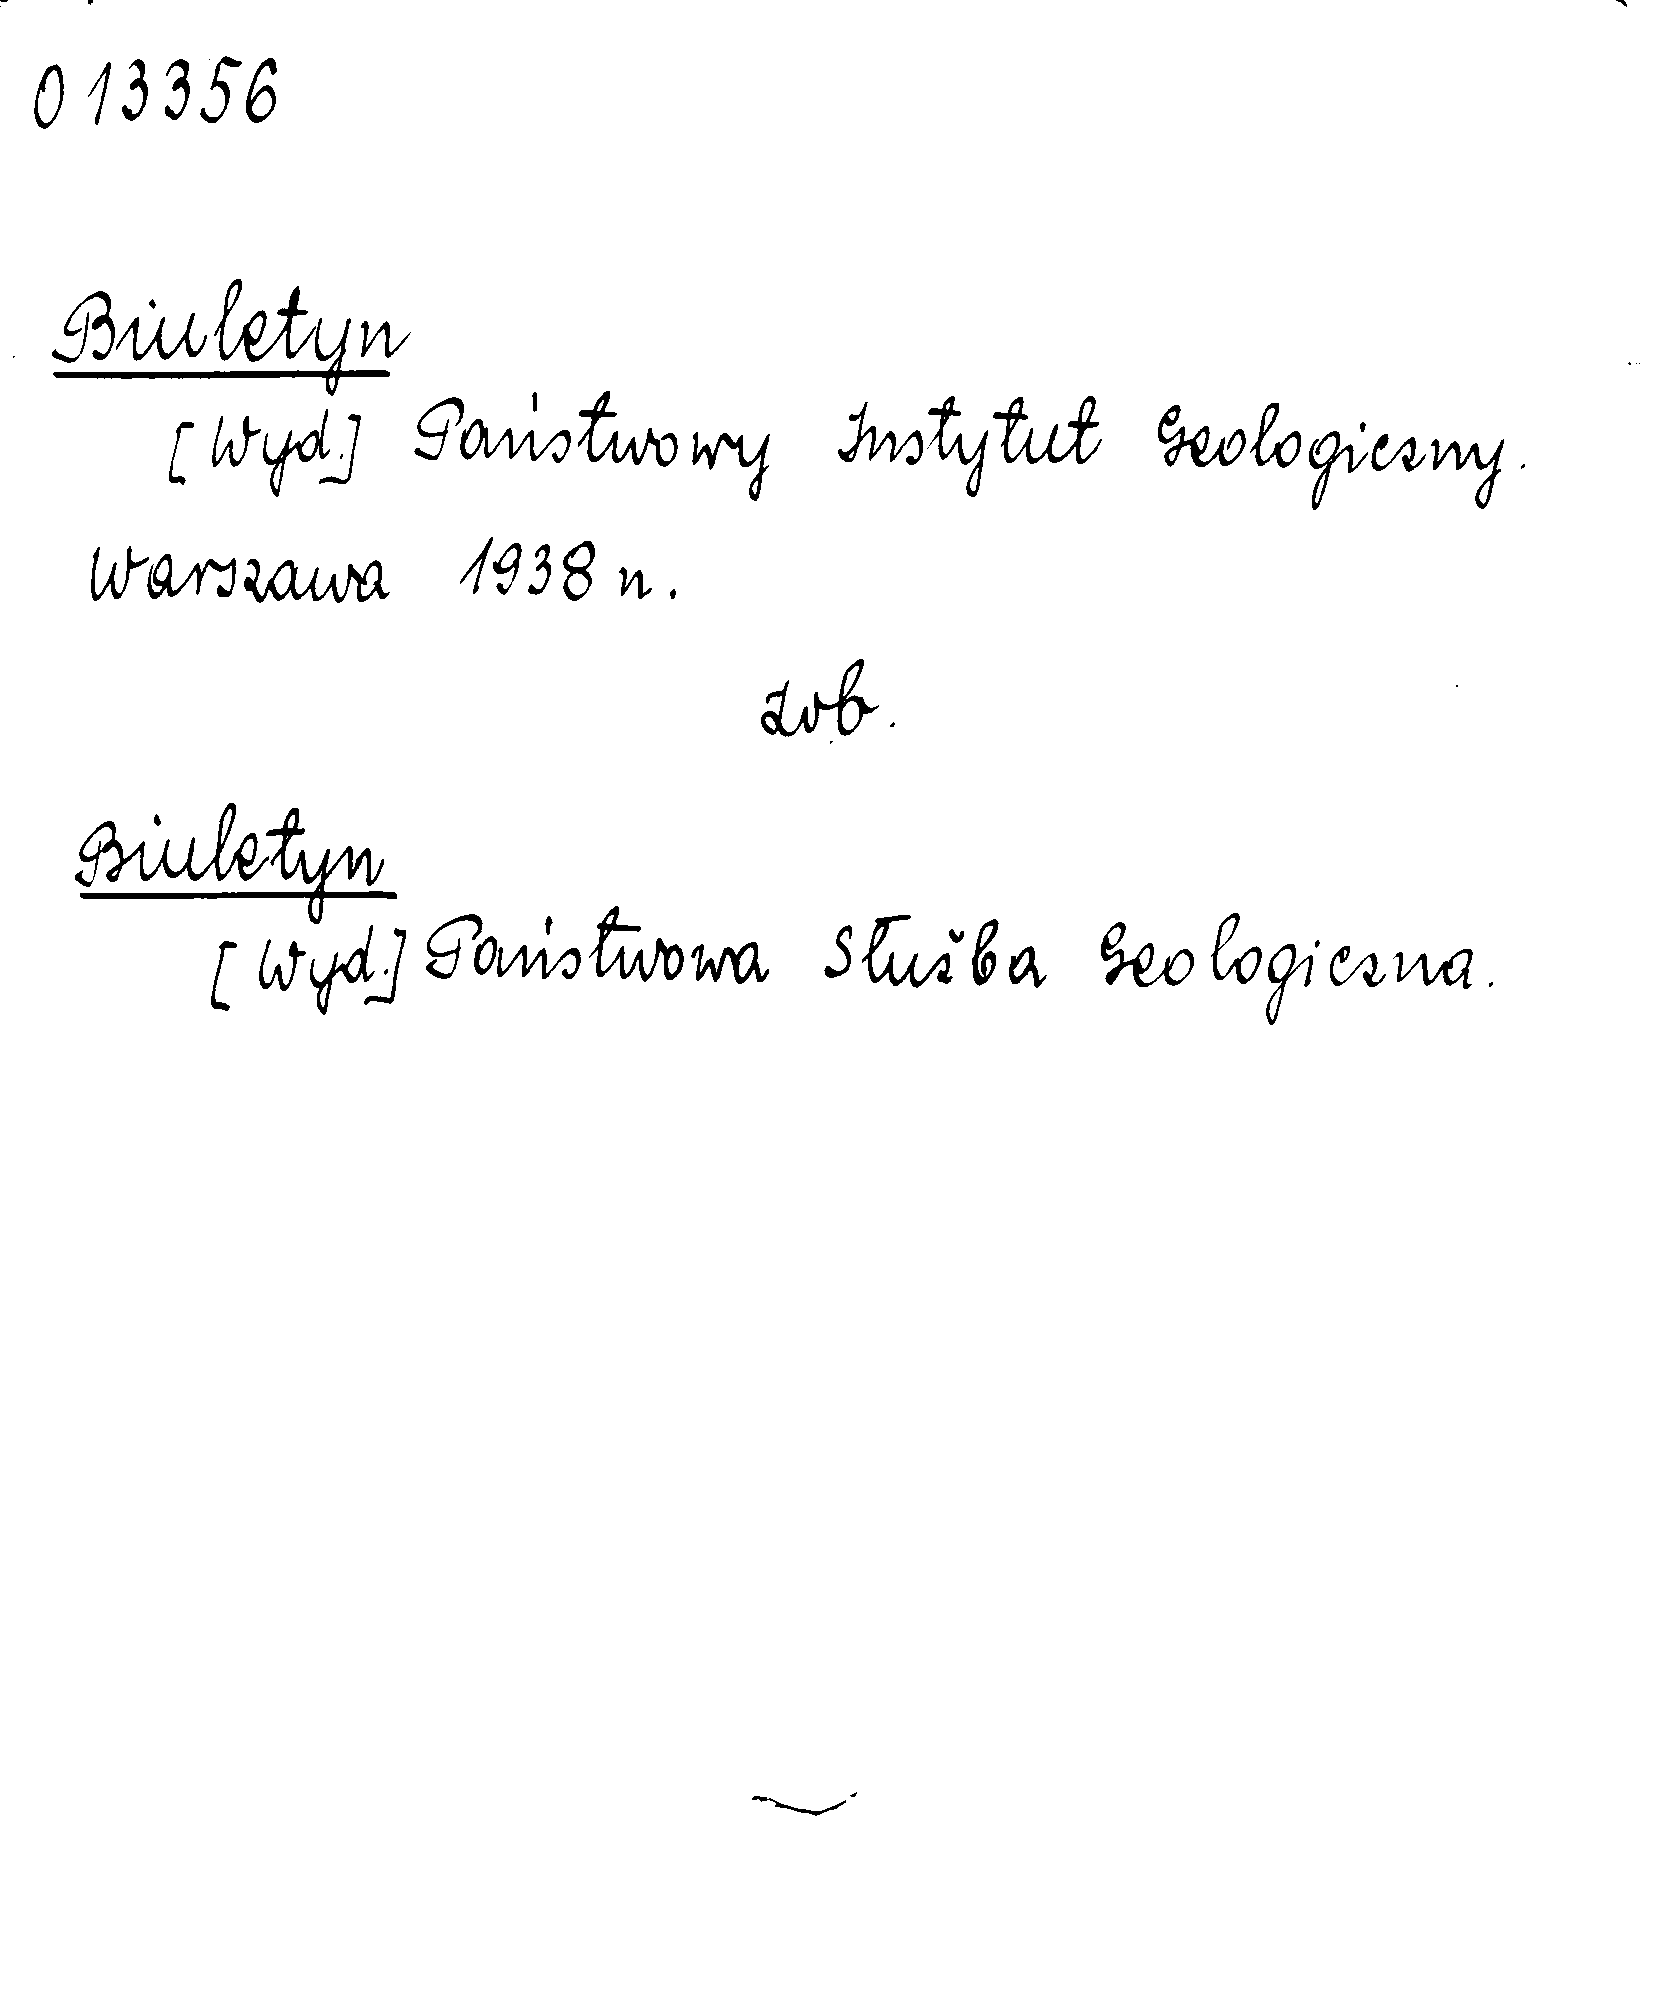 013356
Biuletyn
[Wyd.] Państwowy Instytut Geologiczny.
Warszawa 1938 n.
zob.
Biuletyn
[Wyd.] Państwowa Służba Geologiczna.